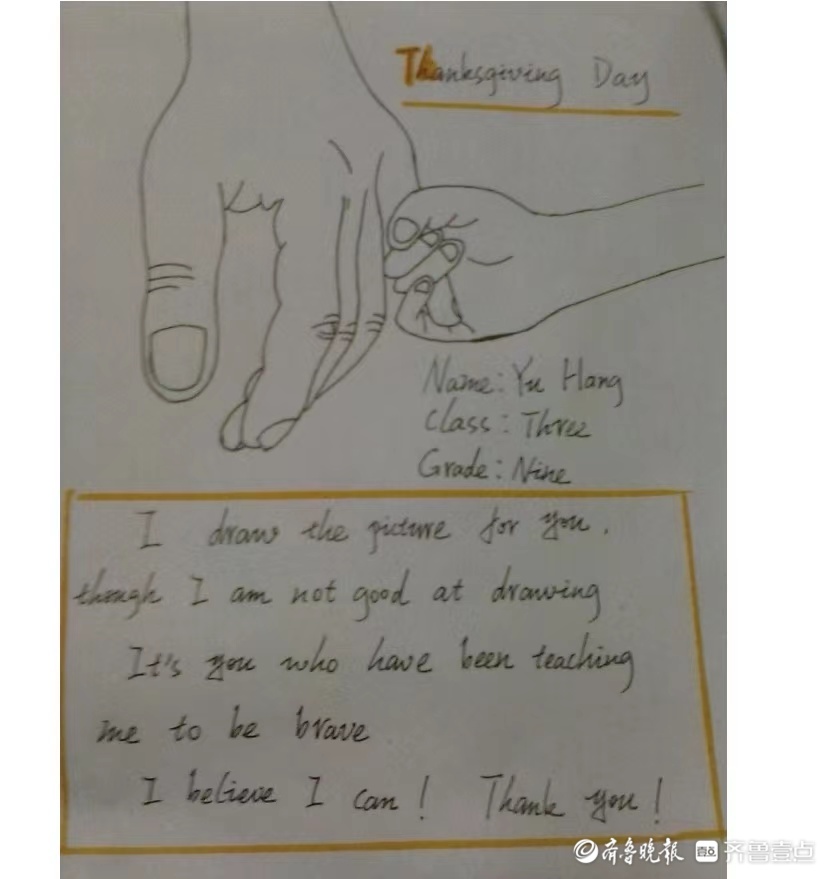 Thanksgiving Day
Name: Yu Hang
Class: Three
Grade: Nine
I draw the picture for you.
though I am not good at drawing
It's you who have been teaching
me to be brave
I believe I can! Thank you!
齐鲁晚报 壹点 齐鲁壹点